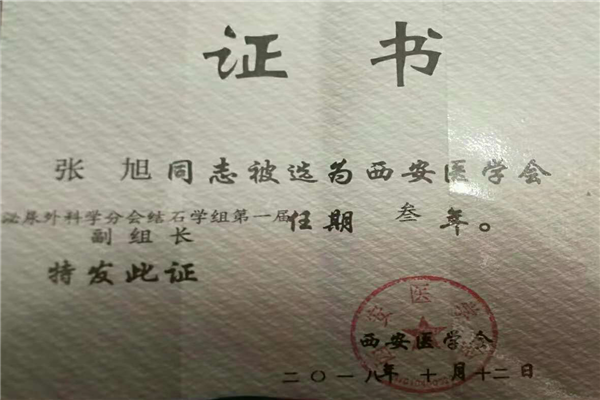 证书
张旭同志被选为西安医学会
泌尿外科学分会结石学组第一届
副组长
任期叁年。
特发此证
西安医学会
西安医学会
二〇一八年十月十二日